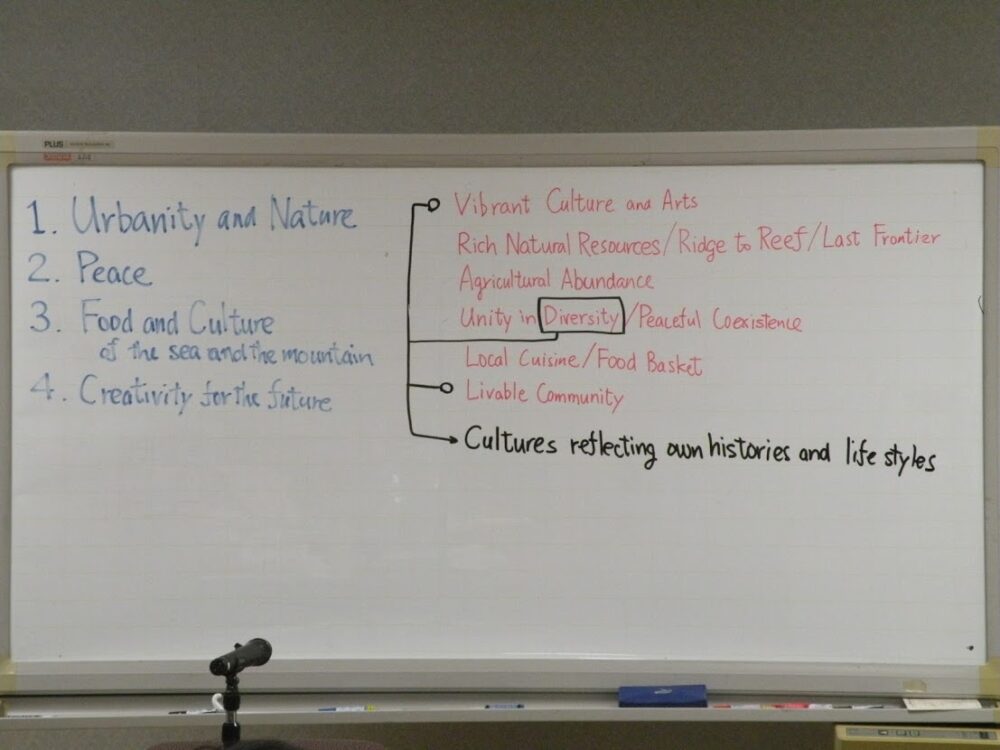 PLUS
1. Urbanity and Nature
2. Peace
3. Food and Culture
of the sea and the mountain
4. Creativity for the future
Vibrant Culture and Arts
Rich Natural Resources/Ridge to Reef/Last Frontier
Agricultural Abundance
Unity in Diversity/Peaceful Coexistence
Local Cuisine/Food Basket
Livable Community
Cultures reflecting own histories and life styles